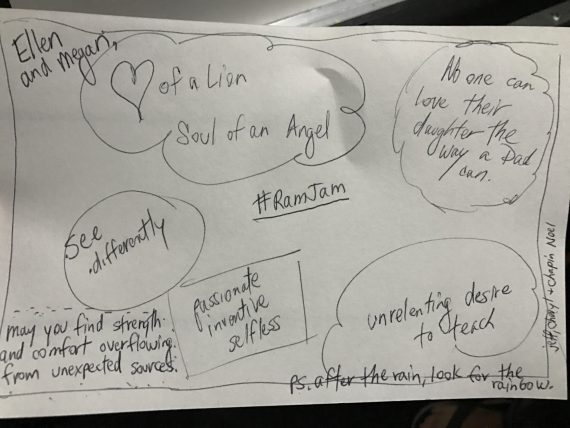 Ellen
and Megan,
♡ of a Lion
Soul of an Angel
No one can
love their
daughter the
way a Dad
can.
#RamJam
See
differently
passionate
inventive
selfless
unrelenting desire
to teach
may you find strength
and comfort overflowing
from unexpected sources.
Jeff, Cheryl + Chapin Noel
PS. after the rain, look for the
rainbow.